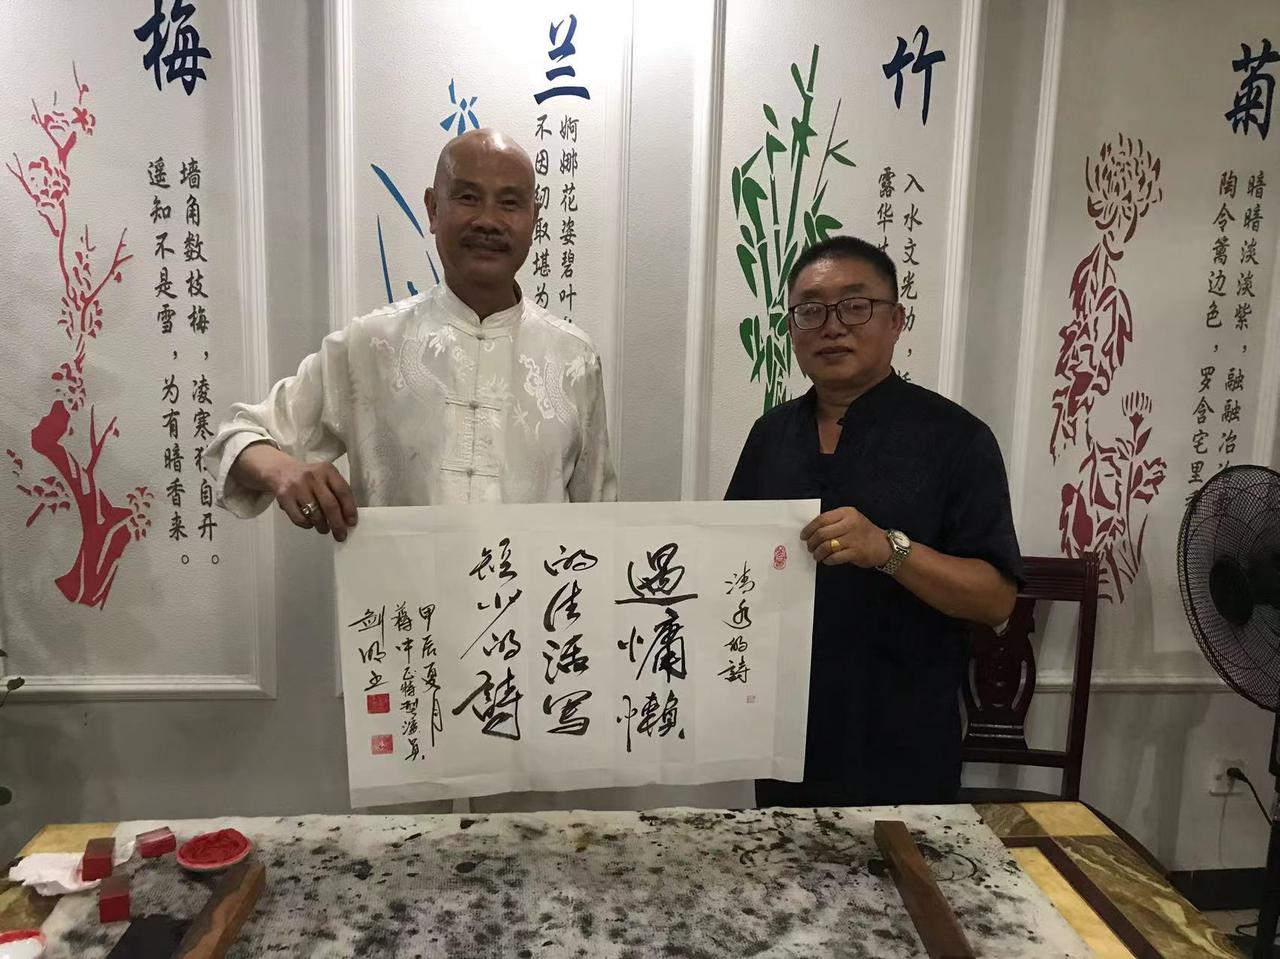 梅
墙角数枝梅，凌寒独自开。
遥知不是雪，为有暗香来。
兰
婀娜花姿碧叶
不因纫取堪为
竹
入水文光动，
露华
菊
暗暗淡淡紫，融融冶
陶令篱边色，罗含宅里
的詩
過慵懒
的生活写
短少的詩
甲辰夏月
蒋中正特型演员
剑明书